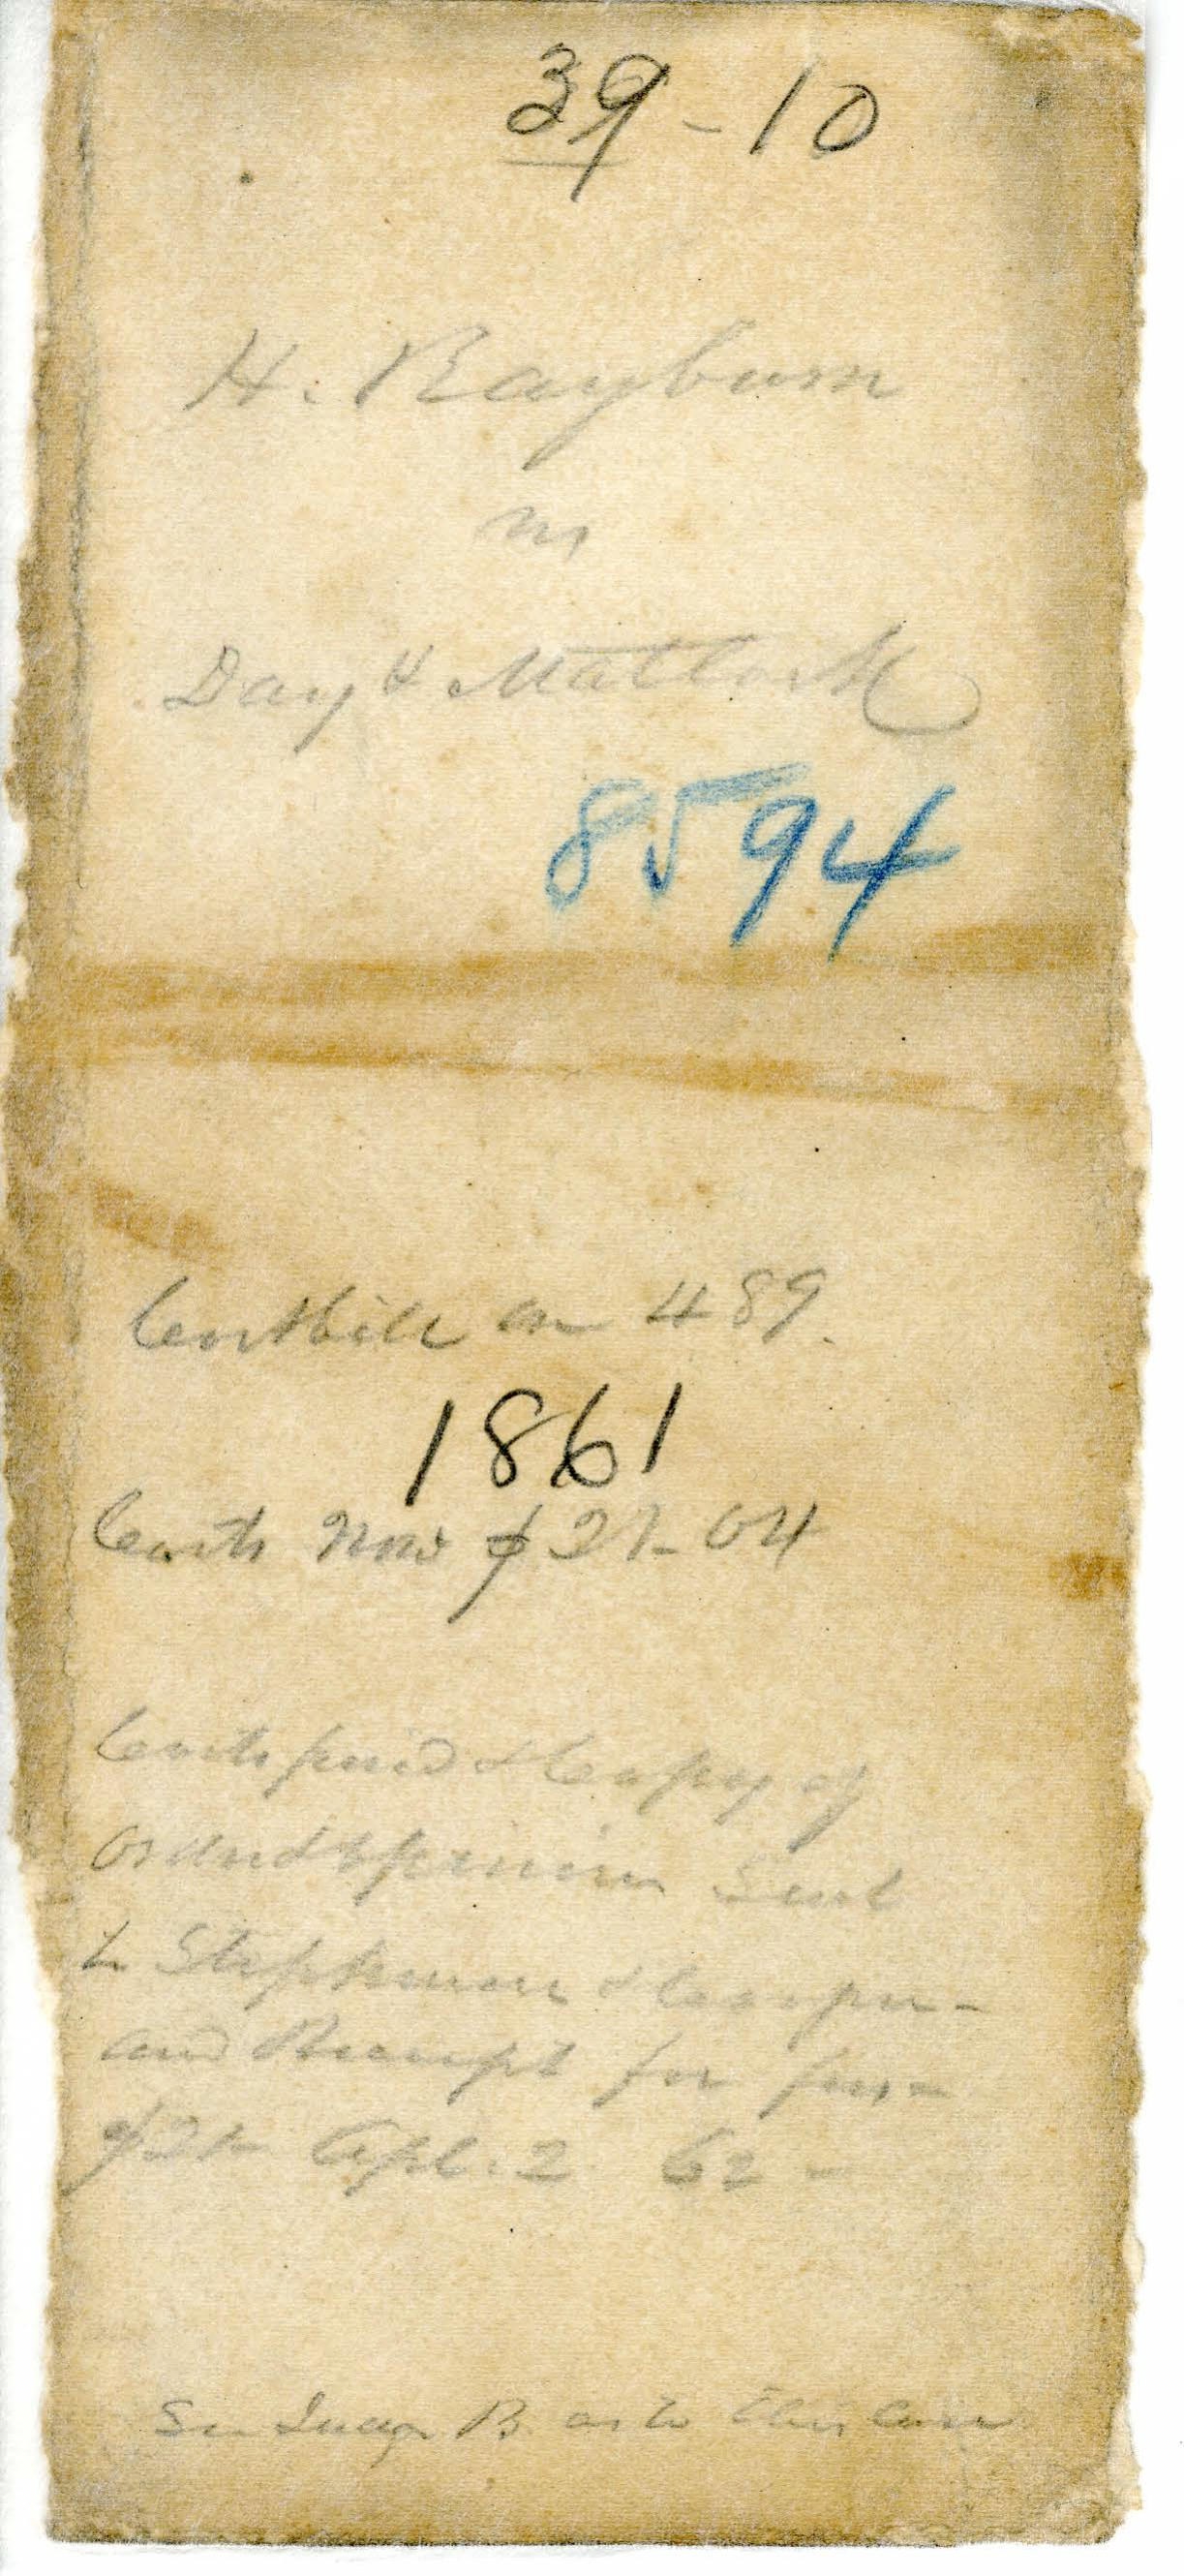 39-10
H. Rayburn
vs
Day & Matlock
8594
Cost bill on 489.
1861
Costs Now $21-04
Costs paid & Copy of
Order & opinion Sent
to Stephenson & Cooper-
and Receipt for fees
$21- Apl. 2 62-
See Judge B. as to this case